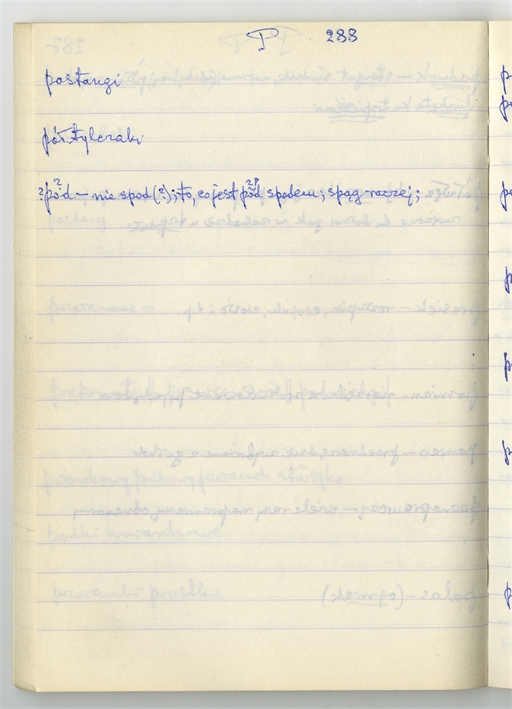 P 288
postangi
pół.tylczaki
?pód – nie spod(?); to, co jest pód spodem; spąg raczej;